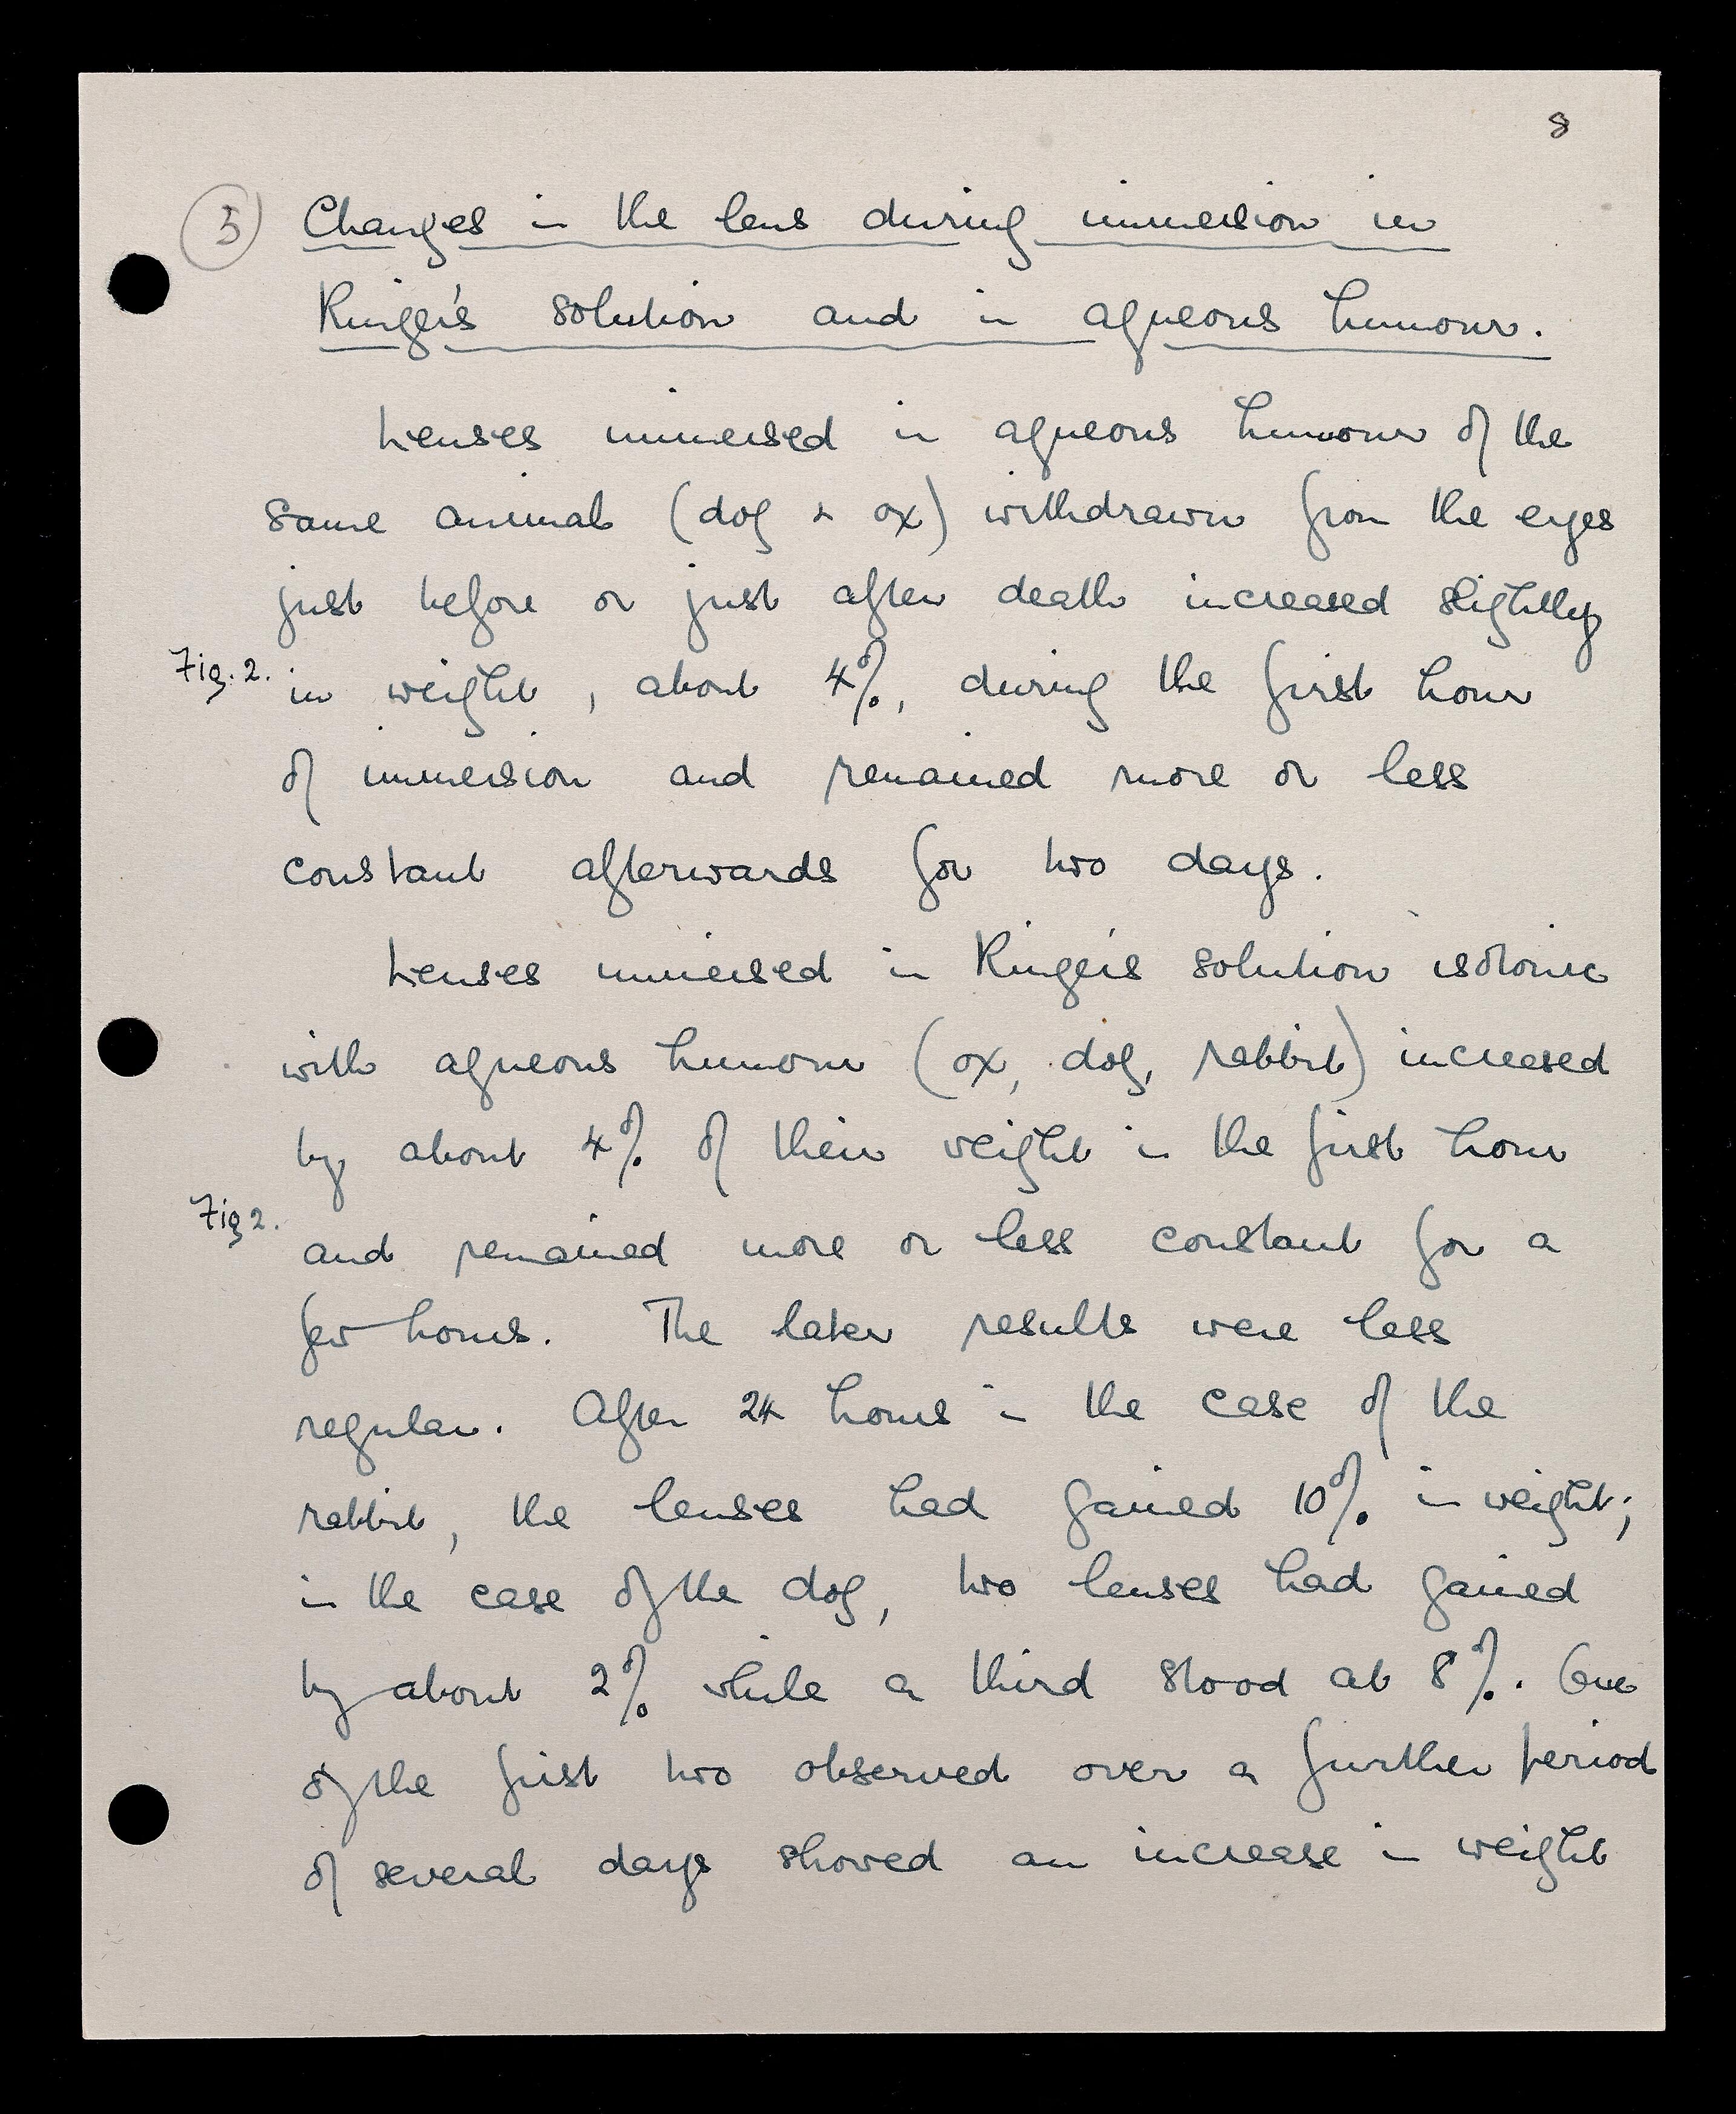 8
3) Changes in the lens during immersion in
Ringer's solution and in aqueous humour.
Lenses immersed in aqueous humour of the
same animal (dog & ox) withdrawn from the eyes
just before or just after death increased slightly
Fig. 2. in weight, about 4%, during the first hour
of immersion and remained more or less
constant afterwards for two days.
Lenses immersed in Ringer's solution isotonic
with aqueous humour (ox, dog, rabbit) increased
by about 4% of their weight in the first hour
Fig 2. and remained more or less constant for a
few hours. The later results were less
regular. After 24 hours in the case of the
rabbit, the lenses had gained 10% in weight;
in the case of the dog, two lenses had gained
by about 2% while a third stood at 8%. One
of the first two observed over a further period
of several days showed an increase in weight